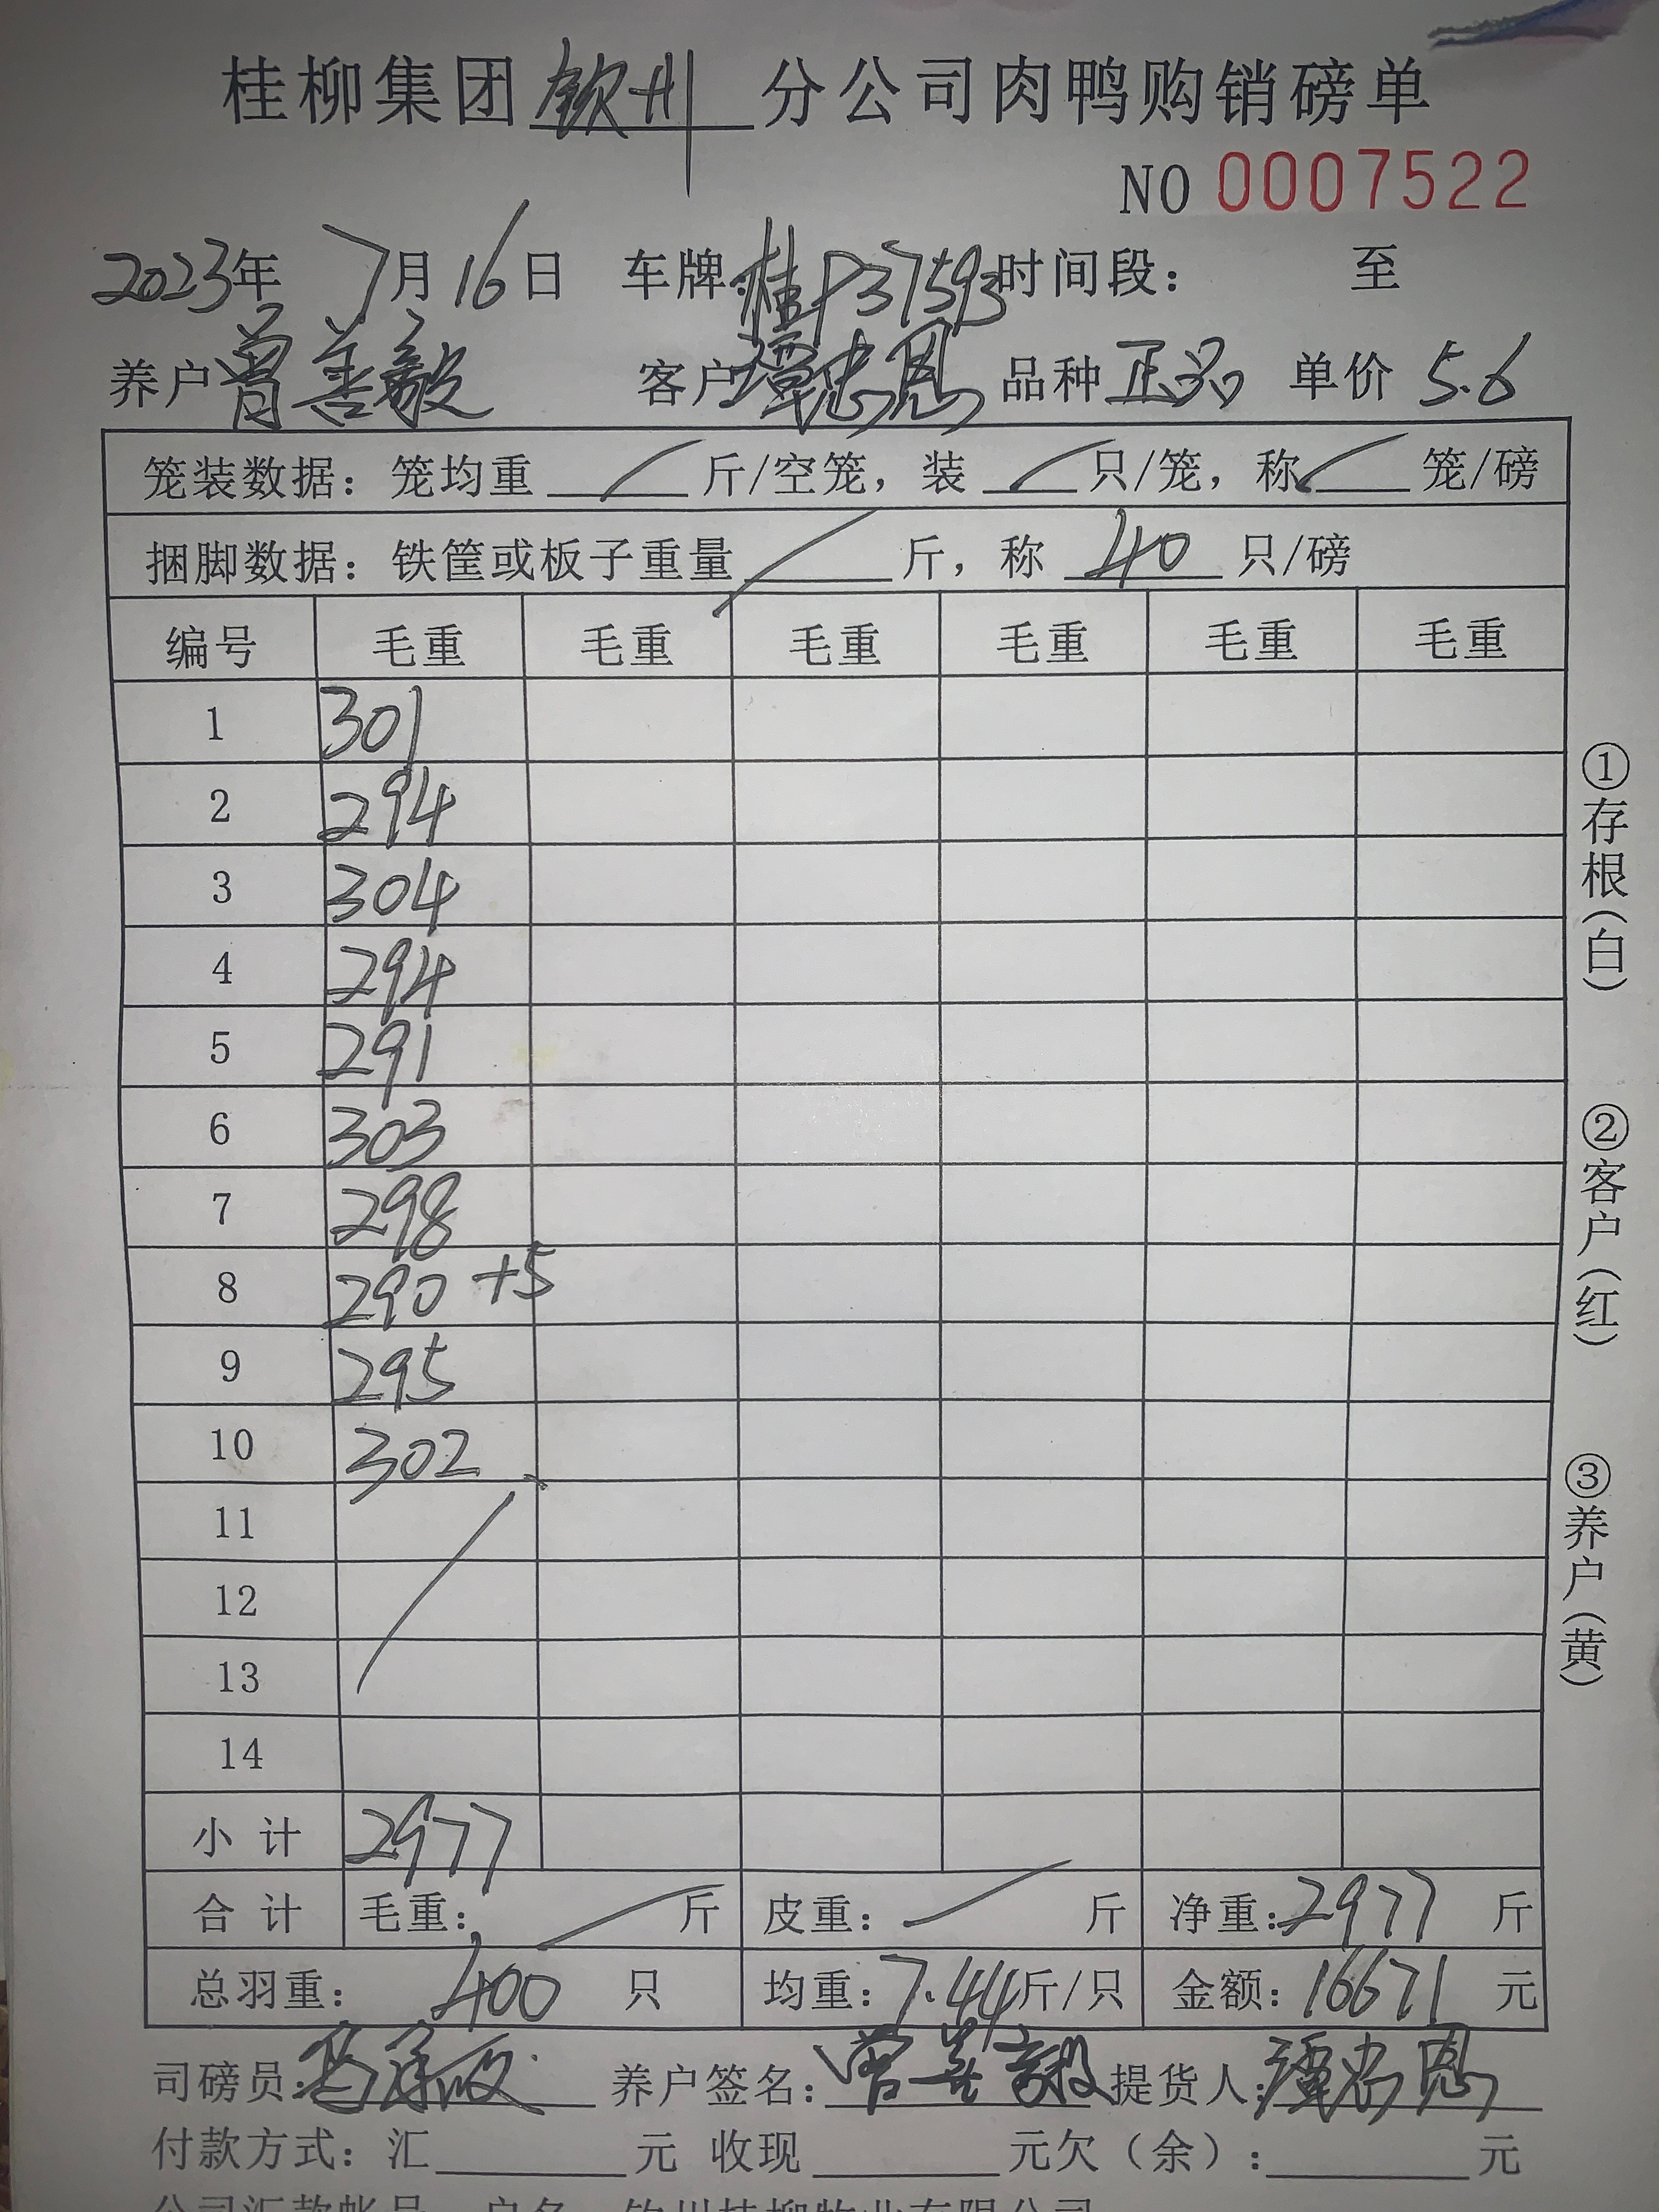 桂柳集团钦州分公司肉鸭购销磅单
NO 0007522
2023年 7月16日 车牌:桂P37593时间段: 至
养户曾善毅 客户谭忠恩 品种正品 单价5.6
笼装数据:笼均重 / 斤/空笼,装 / 只/笼,称 / 笼/磅
捆脚数据:铁筐或板子重量 / 斤,称 40 只/磅
编号 毛重 毛重 毛重 毛重 毛重 毛重
1 301
2 294
3 304
4 294
5 291
6 303
7 298
8 290 +5
9 295
10 302
11
12
13
14
小计 2977
合计 毛重: / 斤 皮重: / 斤 净重:2977 斤
总羽重: 400 只 均重:7.44斤/只 金额:16671 元
司磅员: 养户签名:曾善毅 提货人:谭忠恩
付款方式:汇 元 收现 元欠(余): 元
公司汇款帐号 户名 钦州桂柳牧业有限公司
①存根(白)
②客户(红)
③养户(黄)